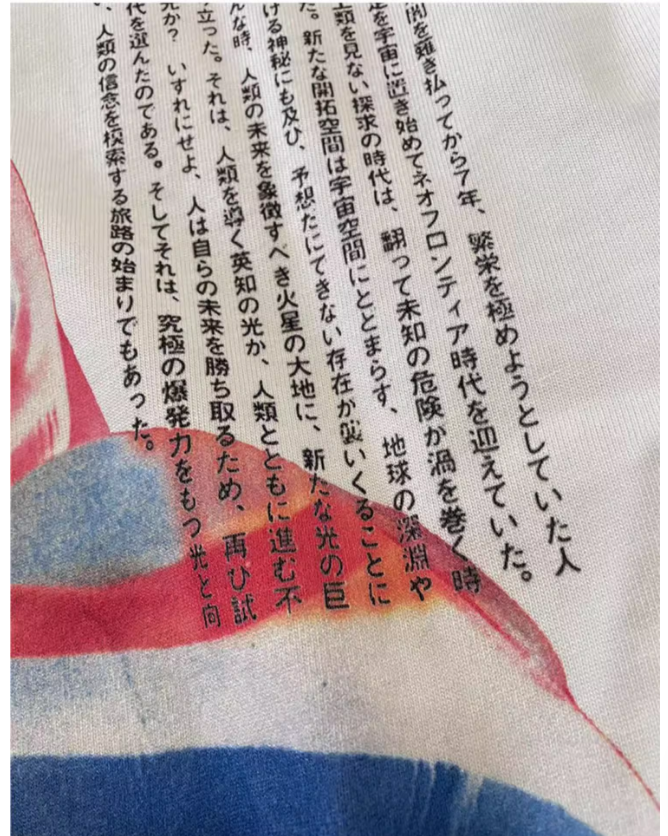 闇を薙き払ってから7年、繁栄を極めようとしていた人
を宇宙に置き始めてネオフロンティア時代を迎えていた。
上類を見ない探求の時代は、翻って未知の危険か渦を巻く時
た。新たな開拓空間は宇宙空間にととまらす、地球の深淵や
ける神秘にも及ひ、予想たにてきない存在か襲いくることに
んな時、人類の未来を象徴すべき火星の大地に、新たな光の巨
立った。それは、人類を導く英知の光か、人類とともに進む不
光か？ いすれにせよ、人は自らの未来を勝ち取るため、再ひ試
代を選んたのである。そしてそれは、究極の爆発力をもつ光と向
、人類の信念を模索する旅路の始まりでもあった。